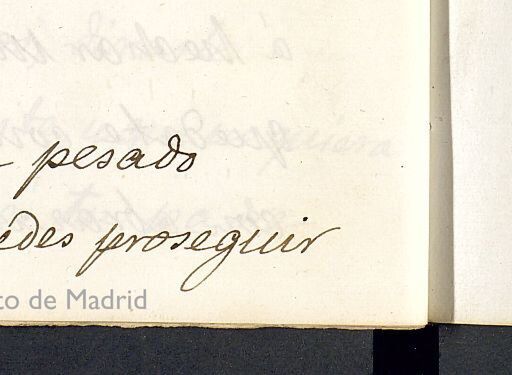 pesado
edes proseguir
to de Madrid